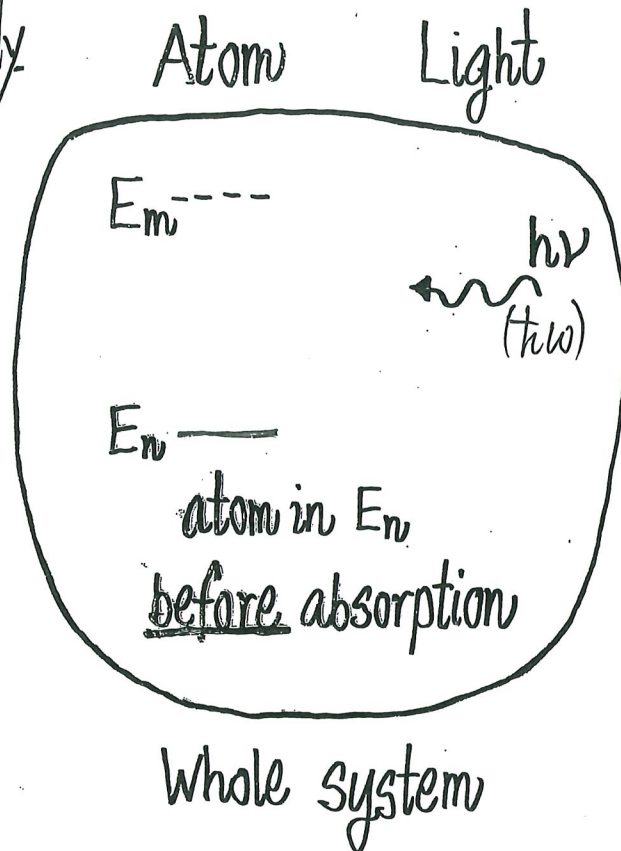 Atom Light
Em
hν
(ħω)
En
atom in En
before absorption
Whole system